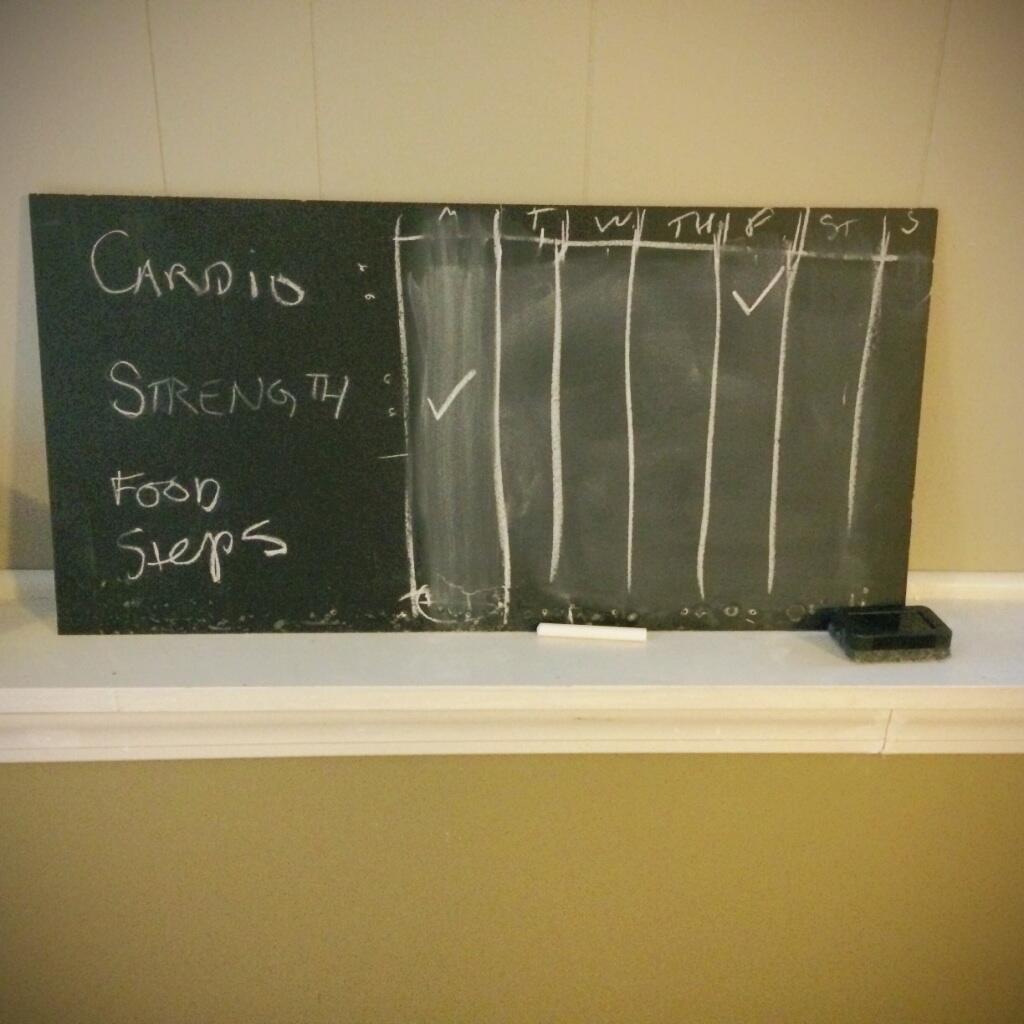 M T W TH F ST S
CARDIO : ✓
STRENGTH : ✓
FOOD
Steps